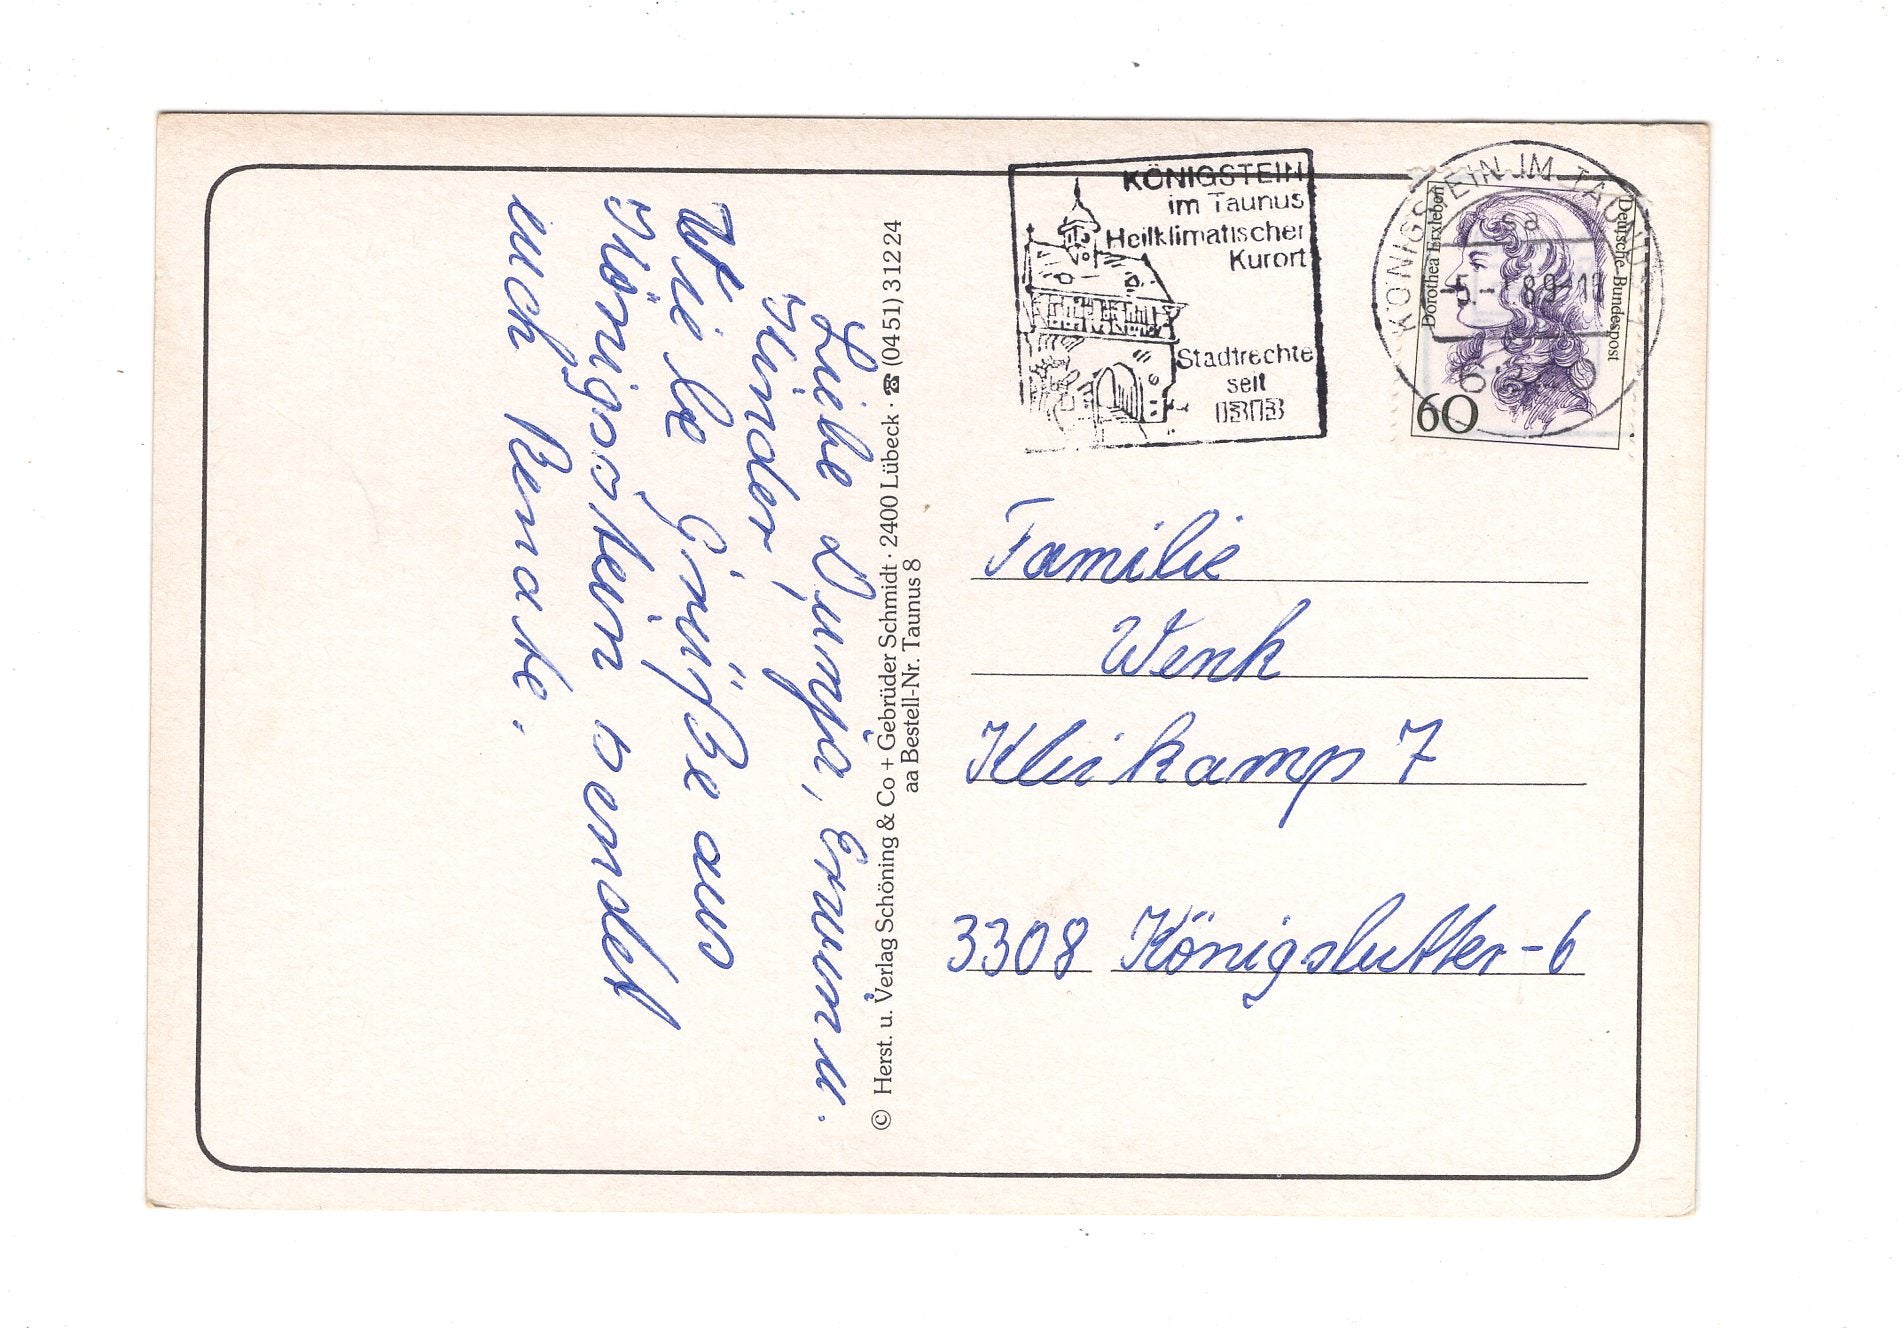 KÖNIGSTEIN
im Taunus
Heilklimatischer
Kurort
Stadtrechte
seit
1313
KÖNIGSTEIN IM TAUNUS
sa
89-19
Dorothea Erxleben
Deutsche Bundespost
60
Liebe Dunja, Erwin u.
Kinder!
Viele Grüße aus
Königstein sendet
euch Renate.
© Herst. u. Verlag Schöning & Co + Gebrüder Schmidt · 2400 Lübeck · ☎ (0451) 31224
aa Bestell-Nr. Taunus 8
Familie
Wenk
Kleikamp 7
3308 Königslutter-6